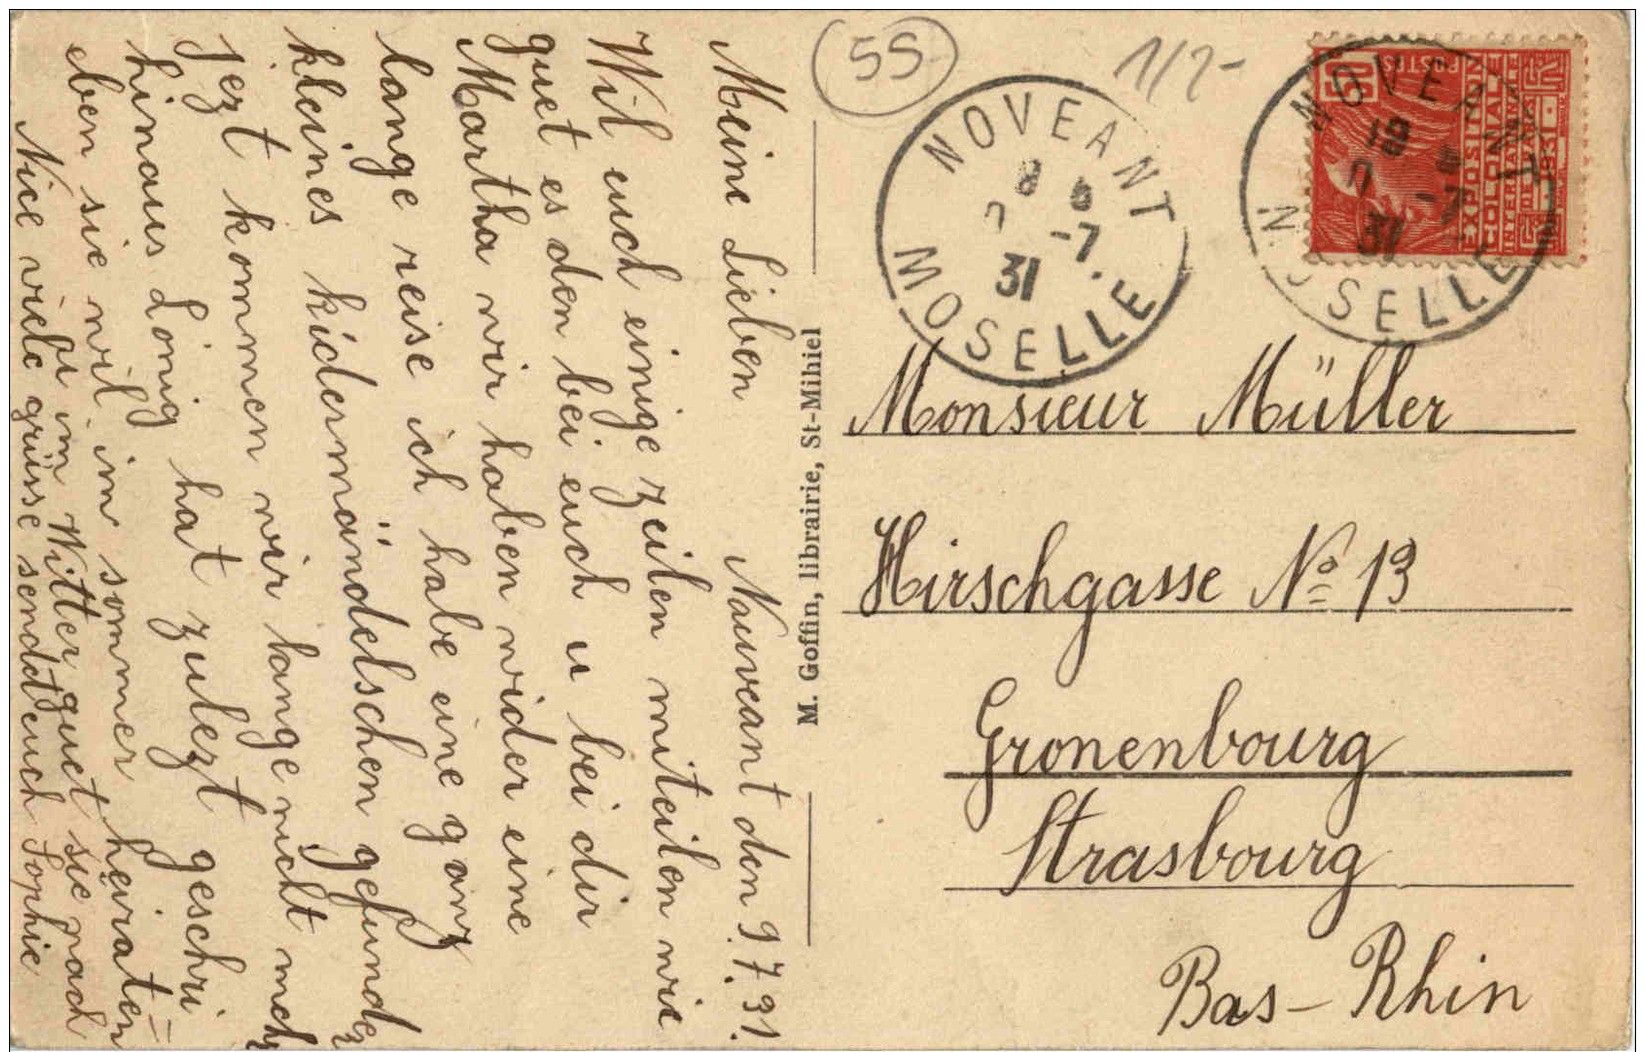 Nauveant den 9.7.31.
Meine Lieben
Wil euch einige zeilen miteilen wie
guet es den bei euch u bei dir
Martha wir haben wider eine
lange reise ich habe eine ganz
kleines kidermändelschen gefunden
jezt kommen wir lange nicht mehr
hinaus Lönig hat zulezt geschri
eben sie wil im sommer heiraten =
im Witter guet sie nach
Nice viele grüsse sendet euch Sophie
M. Goffin, librairie, St-Mihiel
55
1/2-
NOVEANT
8
-7
31
MOSELLE
NOVEANT
18
-7
31
MOSELLE
50
POSTES
EXPOSITION
COLONIALE
INTERNATle
PARIS
1931
RF
Monsieur Müller
Hirschgasse No 13
Gronenbourg
Strasbourg
Bas-Rhin